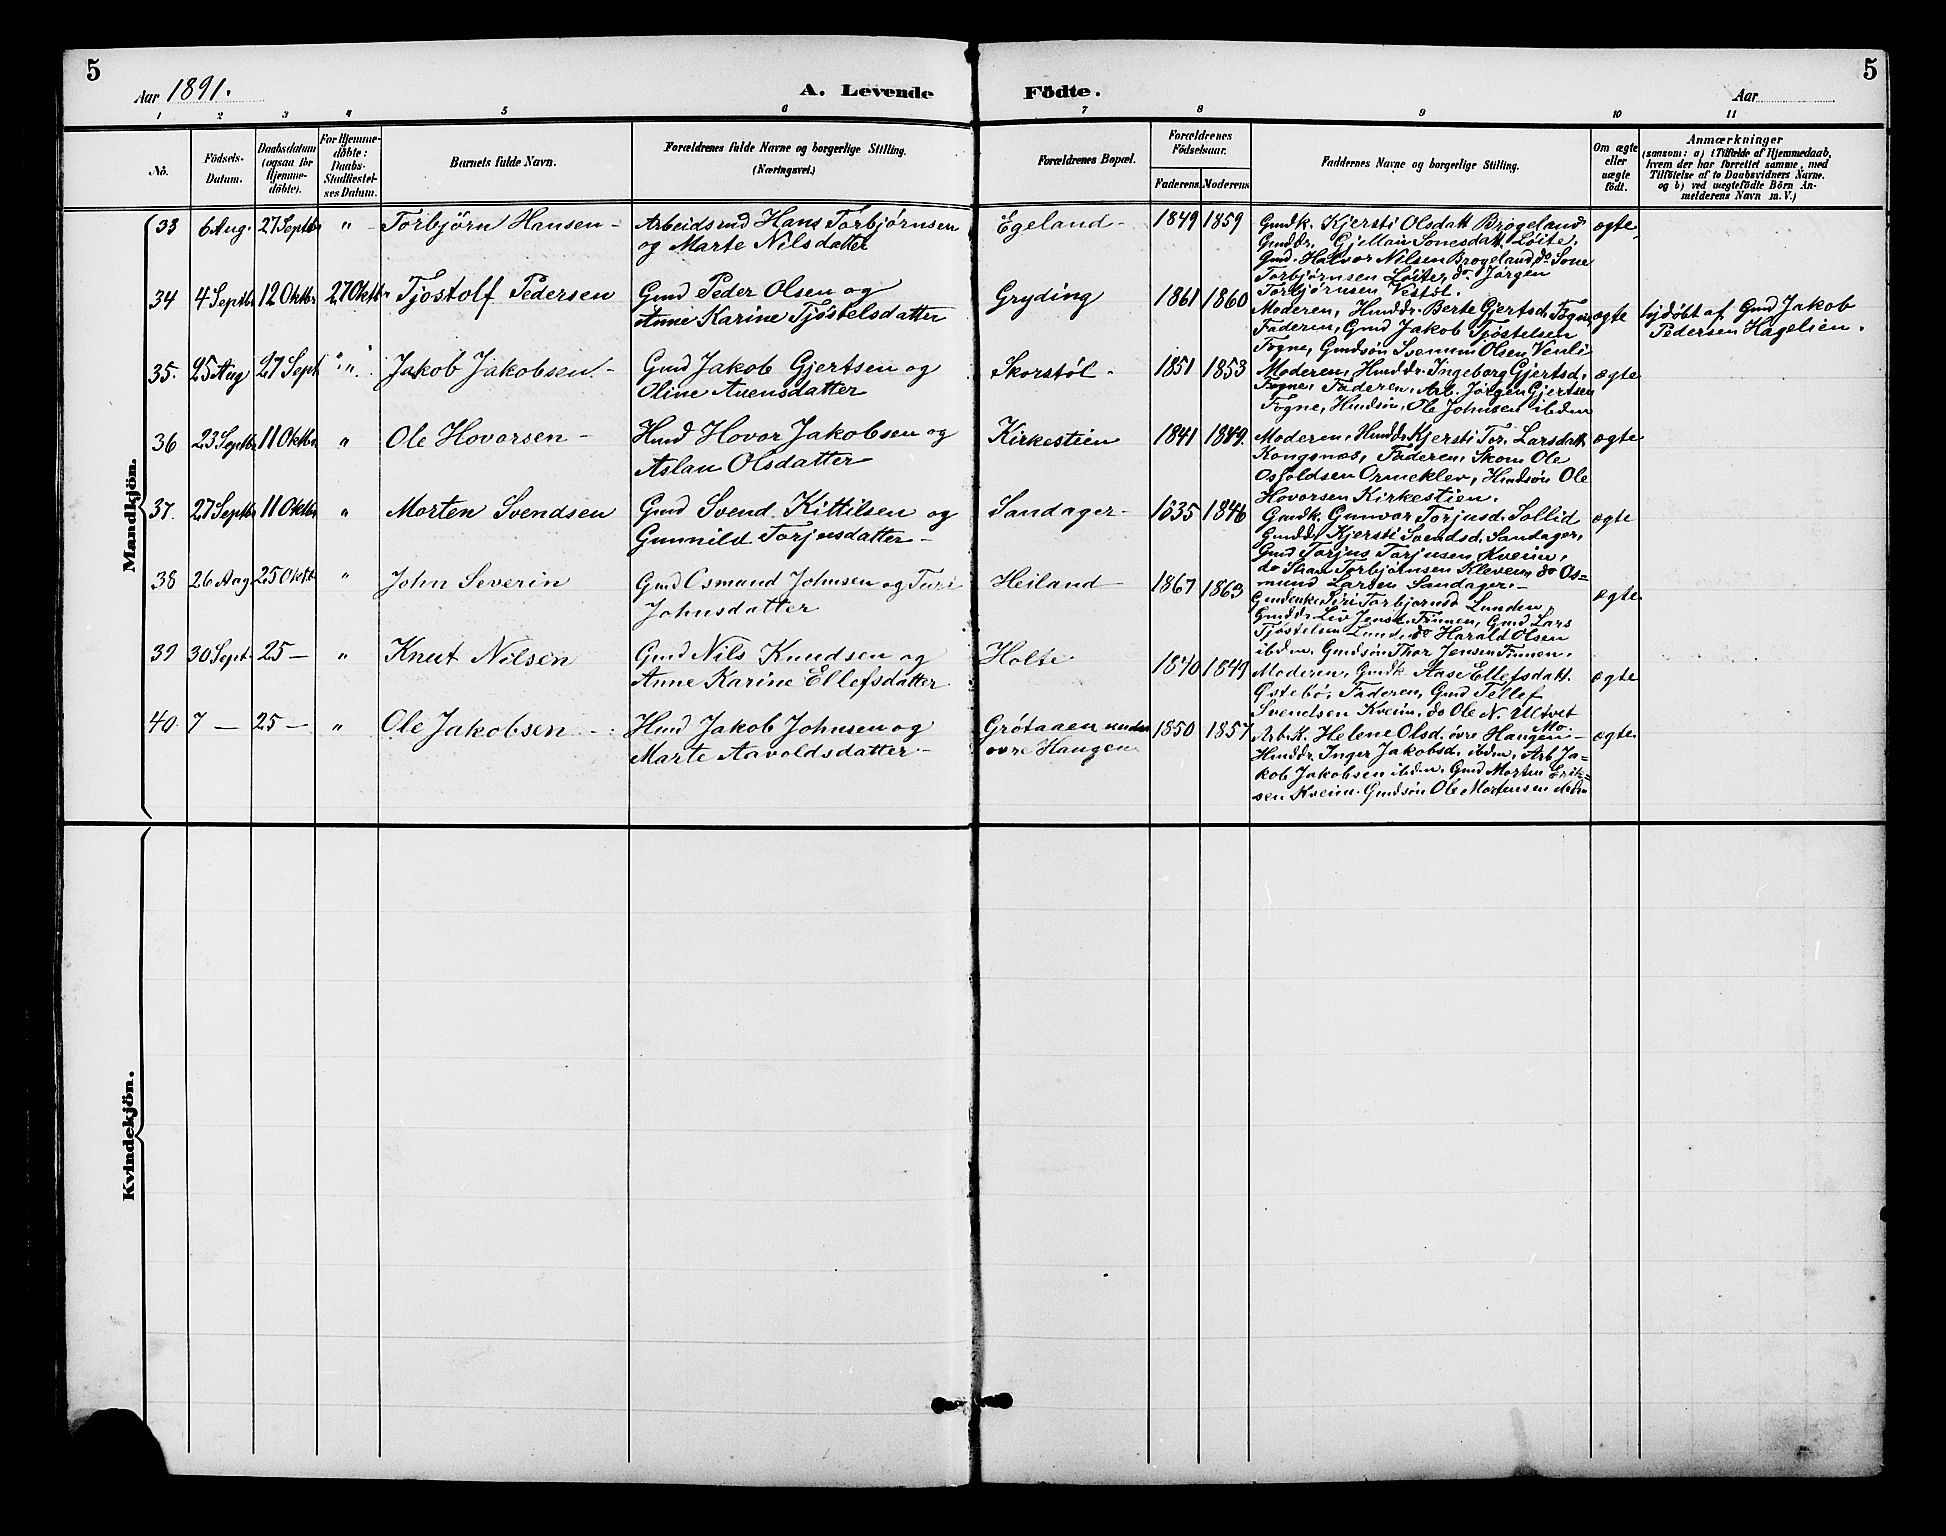 5
Aar 1891.
A. Levende
Födte.
Aar
5
1 2 3 4 5 6 7 8 9 10 11
No.
Födsels-
Datum.
Daabsdatum
(ogsaa for
Hjemme-
döbte).
For Hjemme-
döbte:
Daabs-
Stadfæstel-
ses Datum.
Barnets fulde Navn.
Forældrenes fulde Navne og borgerlige Stilling.
(Næringsvei.)
Forældrenes Bopæl.
Forældrenes
Födselsaar.
Faderens Moderens
Faddernes Navne og borgerlige Stilling.
Om ægte
eller
uægte
födt.
Anmærkninger
(saasom: a) i Tilfælde af Hjemmedaab,
hvem der har forrettet samme, med
Tilföielse af to Daabsvidners Navne.
og b) ved uægtefödte Börn An-
melderens Navn m. V.)
Mandkjön.
33 6 Aug. 27 Septbr " Torbjörn Hansen -
Arbeidsmd Hans Torbjørnsen
og Marte Nilsdatter
Egeland - 1849 1859
Gmdk. Kjersti Olsdatt Brøgeland
Gmddr. Gjellaui Sonesdatt. Løite.
Gmd. Halvor Nilsen Brøgeland, do Sone
Torbjørnsen Løite, do. Jørgen
Torbjørnsen Vestøl.
ægte
34 4 Septbr 12 Oktbr 27 Oktbr Tjøstolf Pedersen
Gmd Peder Olsen og
Anne Karine Tjøstelsdatter
Gryding 1861 1860
Moderen, Hmddr. Berte Gjertsd. Fogne,
Faderen, Gmd Jakob Tjøstelsen
Fogne, Gmdsøn Svennum Olsen Venli
ægte
hjdøbt af Gmd Jakob
Pedersen Hagelien.
35. 25 Aug 27 Sept " " Jakob Jakobsen -
Gmd Jakob Gjertsen og
Oline Avensdatter
Skorstøl - 1851 1853
Moderen, Hmddr. Ingeborg Gjertsd.
Fogne, Faderen, Arb. Jørgen Gjertsen
Fogne, Hmdsøn, Ole Johnsen ibdm
ægte
36 23 Septbr 11 Oktbr " Ole Hovorsen -
Hmd Hovor Jakobsen og
Aslau Olsdatter
Kirkestien 1841 1849.
Moderen, Hmddr Kjersti Tor. Larsdatt.
Kongsnæs, Faderen, Skom Ole
Osfoldsen Ormeklev, Hmdsøn Ole
Hovorsen Kirkestien.
ægte
37. 27 Septbr 11 Oktbr " Morten Svendsen
Gmd Svend Kittilsen og
Gunnild Torjusdatter -
Sandager - 1835 1846
Gmdk. Gunvor Torjusd. Sollid
Gmddr Kjersti Svendsd. Sandager,
Gmd Torjus Torjusen Kveim,
do Stian Torbjørnsen Kleveim, do Os-
mund Larsen Sandager -
ægte
38 26 Aug 25 Oktb " John Severin
Gmd Osmund Johnsen og Turi
Johnsdatter
Heiland - 1867 1863
Gmdenke Siri Torbjørnsd Lunden,
Gmddr Liv Jensd. Finnen, Gmd Lars
Tjøstelsen Lund, do Harald Olsen
ibdm, Gmdsøn Thor Jensen Finnen.
ægte
39 30 Sept. 25 - " Knut Nilsen
Gmd Nils Knudsen og
Anne Karine Ellefsdatter
Holte 1840 1849
Moderen, Gmdk Aase Ellefsdatt.
Østebø, Faderen, Gmd Tellef
Svendsen Kveim, do Ole N. Ultvet
Mo.
ægte
40. 7 - 25 - " Ole Jakobsen -
Hmd Jakob Johnsen og
Marte Aavoldsdatter -
Grøtaaen under
øvre Haugen 1850 1857
Arb.K. Helene Olsd. øvre Haugen -
Hmddr. Inger Jakobsd. ibdm, Arb Ja-
kob Jakobsen ibdm, Gmd Morten Erik-
sen Kveim. Gmdsøn Ole Mortensen ibdm
ægte
Kvindekjön.